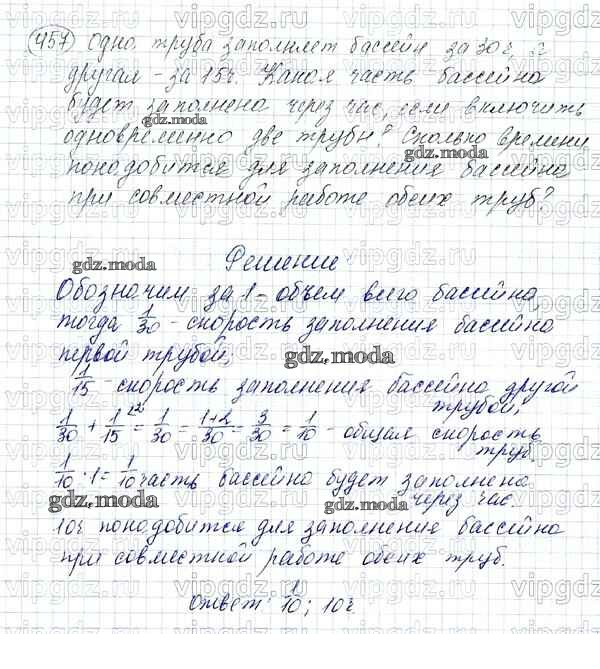 457 Одна труба заполняет бассейн за 30ч, а
другая - за 15ч. Какая часть бассейна
будет заполнена через час, если включить
gdz.moda
одновременно две трубы? Сколько времени
gdz.moda
понадобится для заполнения бассейна
при совместной работе обеих труб?
Решение
gdz.moda
Обозначим за 1 - объем всего бассейна,
тогда 1/30 - скорость заполнения бассейна
первой трубой,
gdz.moda
1/15 - скорость заполнения бассейна другой
трубой;
1/30 + 1/15 = 1/30 = 1+2/30 = 3/30 = 1/10 - общая скорость
труб
1/10 · 1 = 1/10 часть бассейна будет заполнена
через час.
gdz.moda
gdz.moda
10ч понадобится для заполнения бассейна
при совместной работе обеих труб.
Ответ: 1/10; 10ч
vipgdz.ru